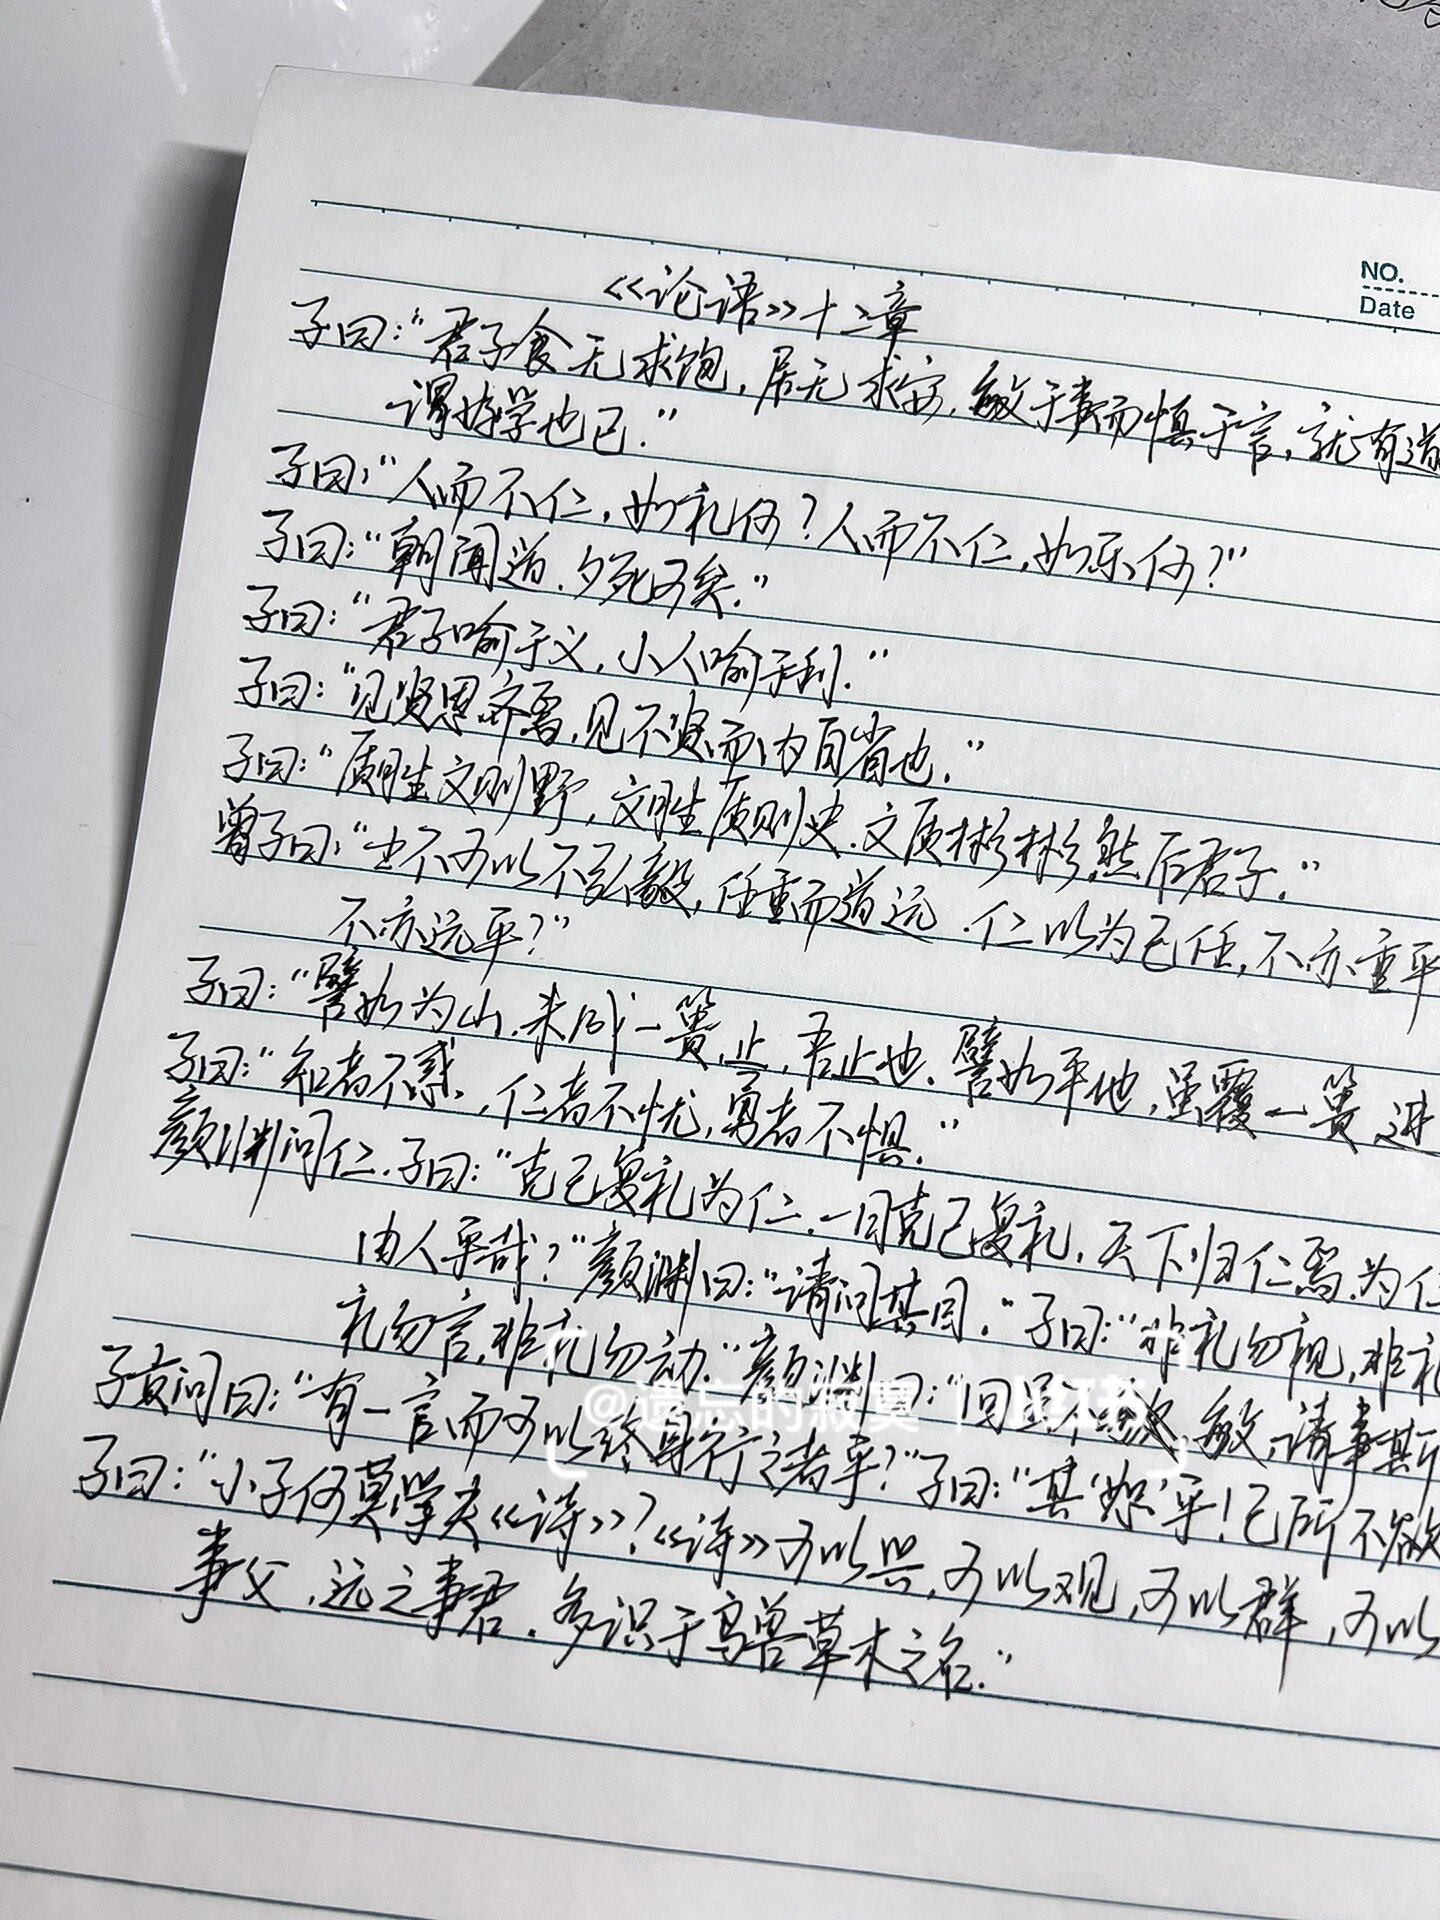 NO.
Date
《论语》十二章
子曰：“君子食无求饱，居无求安，敏于事而慎于言，就有道
谓好学也已.”
子曰：“人而不仁，如礼何？人而不仁，如乐何？”
子曰：“朝闻道.夕死可矣.”
子曰：“君子喻于义，小人喻于利.”
子曰：“见贤思齐焉，见不贤而内自省也.”
子曰：“质胜文则野，文胜质则史.文质彬彬，然后君子.”
曾子曰：“士不可以不弘毅，任重而道远.仁以为己任，不亦重乎
不亦远乎？”
子曰：“譬如为山.未成一篑，止，吾止也.譬如平地，虽覆一篑，进
子曰：“知者不惑，仁者不忧，勇者不惧.”
颜渊问仁.子曰：“克己复礼为仁.一日克己复礼，天下归仁焉.为仁
由人乎哉？”颜渊曰：“请问其目.”子曰：“非礼勿视，非礼
礼勿言，非礼勿动.”颜渊曰：“回虽不敏，请事斯
子贡问曰：“有一言而可以终身行之者乎？”子曰：“其‘恕’乎！己所不欲
子曰：“小子何莫学夫《诗》？《诗》可以兴，可以观，可以群，可以
事父，远之事君.多识于鸟兽草木之名.”
@遗忘的寂寞 | 小红书